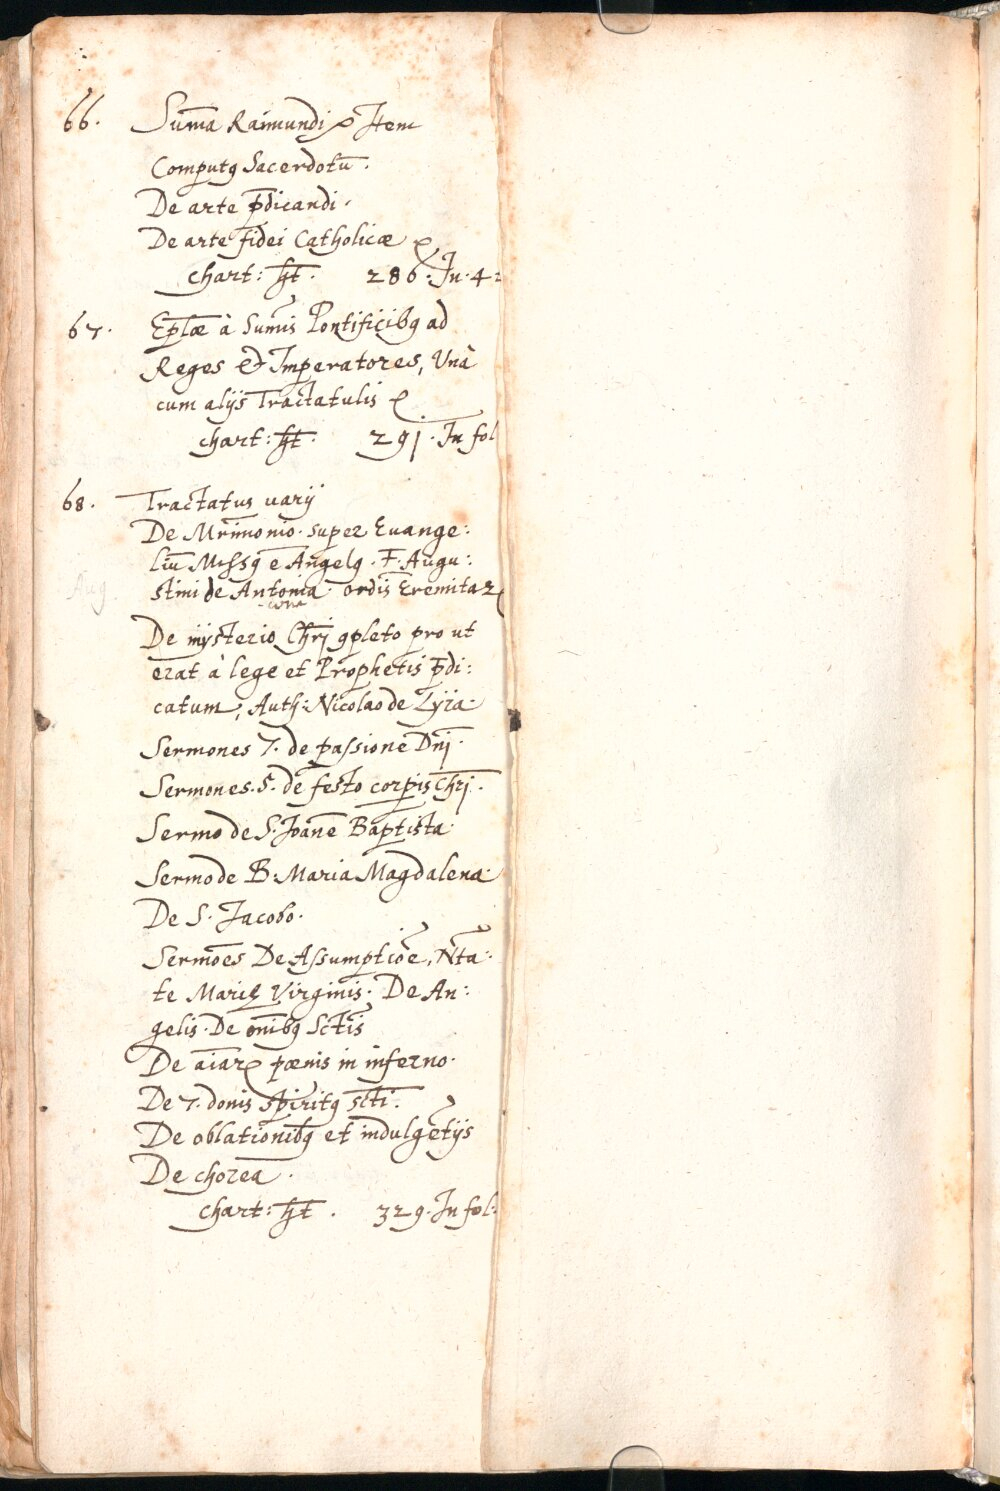 66. Sum̄a Raimundi ꝛ Item
Computꝰ Sacerdotū.
De arte p̄dicandi.
De arte fidei Catholicæ ꝛ
chart: ht̄. 286. In. 4
67. Ep̄læ à Sum̄is Pontificibꝰ ad
Reges et Imperatores, Unà
cum alijs Tractatulis ꝛ.
chart: ht̄. 291. In fol
68. Tractatus varij
De Mr̄imonio. super Euange:
liū Missꝰ e Angelꝰ. F. Augu:
stini de Antonia ord̄is Eremitaꝝ
cona
De mysterio Chr̄j ꝯpleto pro ut
erat à lege et Prophetis p̄di:
catum, Auth: Nicolao de Lyra.
Sermones 7. de passione Dn̄j.
Sermones. 5. de festo corp̄is Chr̄j.
Sermo de S. Joāne Baptista
Sermo de B: Maria Magdalena.
De S. Jacobo.
Sermōes De Assumptiōe, Nt̄a:
te Marię Virginis. De An:
gelis. De om̄ibꝰ Sct̄is
De aīaꝝ pœnis in inferno.
De 7. donis Spiritꝰ sct̄i.
De oblationibꝰ et indulgētijs
De chorea.
chart: ht̄. 329. In fol:
Aug